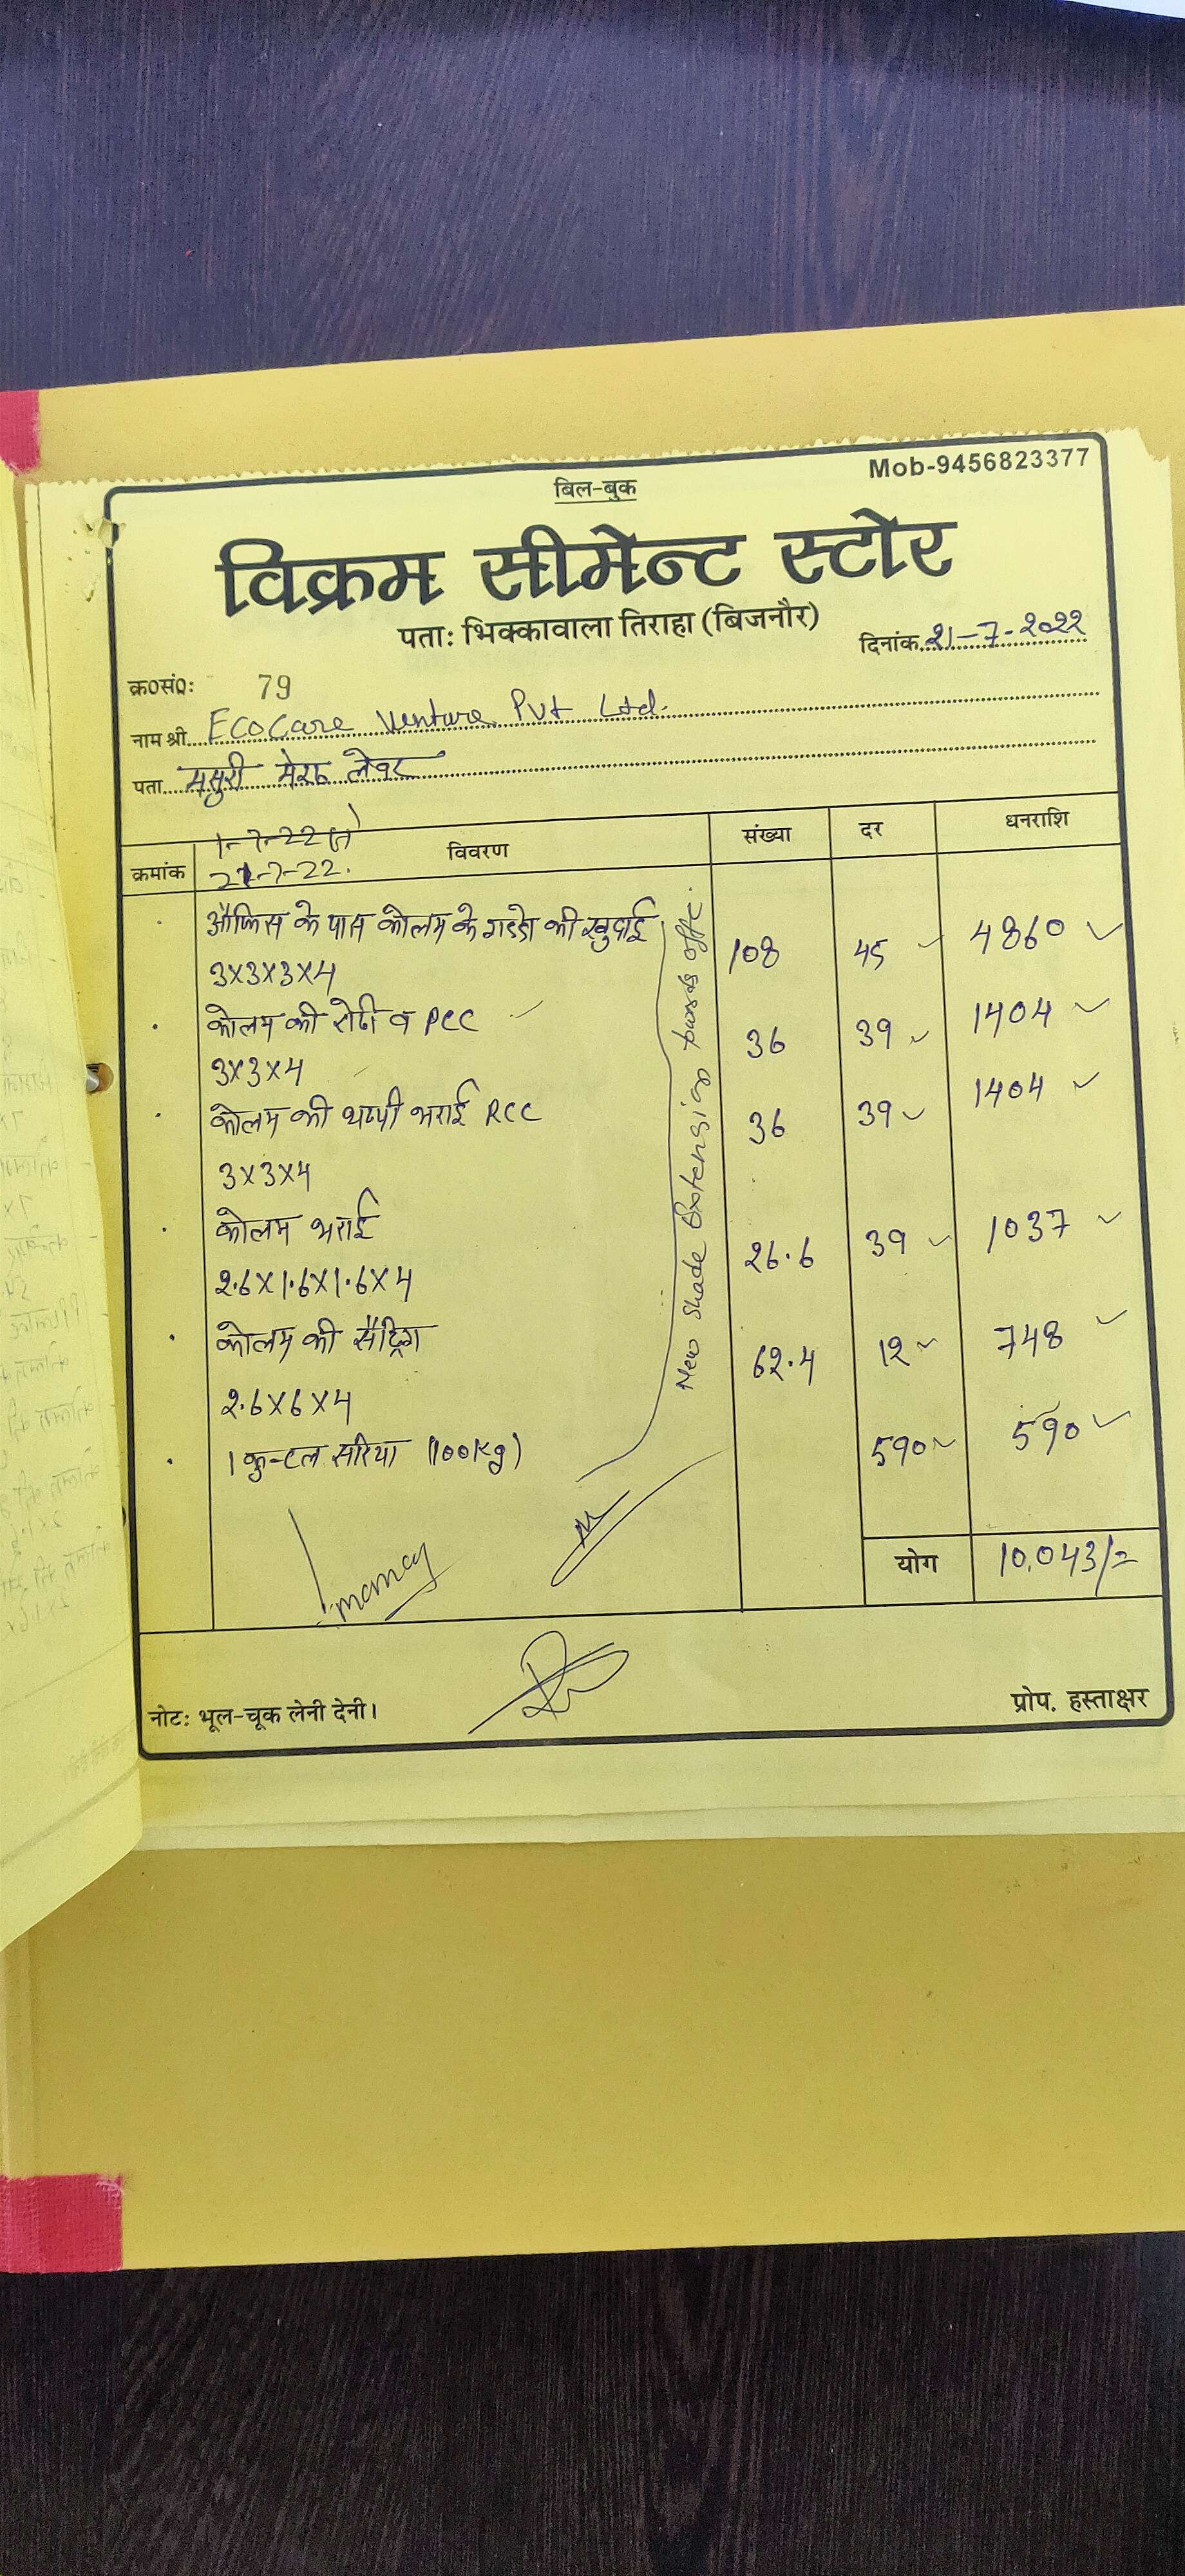 Mob-9456823377
बिल-बुक
विक्रम सीमेन्ट स्टोर
पता: भिक्कावाला तिराहा (बिजनौर)
दिनांक 21-7-2022
क्र0सं0: 79
नाम श्री EcoCare Venture Pvt Ltd.
पता मसुरी मेरठ लेबर
क्रमांक विवरण संख्या दर धनराशि
1-7-22 से
21-7-22.
औफिस के पास कोलम के गडडो की खुदाई
3x3x3x4 108 45 4860
कोलम की रोटी व PCC
3x3x4 36 39 1404
कोलम की थप्पी भराई RCC
3x3x4 36 39 1404
कोलम भराई
2.6x1.6x1.6x4 26.6 39 1037
कोलम की सैट्रिंग
2.6x6x4 62.4 12 748
1 कुन्टल सरिया (100Kg) 590 590
New Shade Extension towards offc.
योग 10,043/=
नोट: भूल-चूक लेनी देनी।
प्रोप. हस्ताक्षर